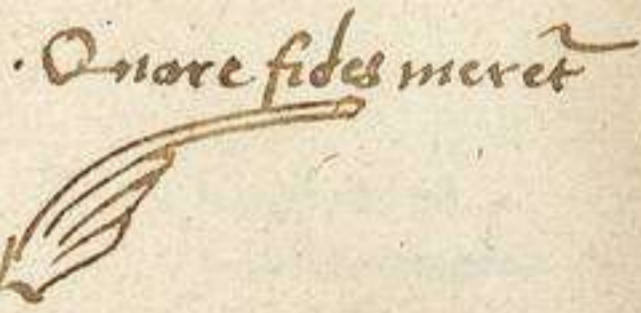 · Quare fides meret̃